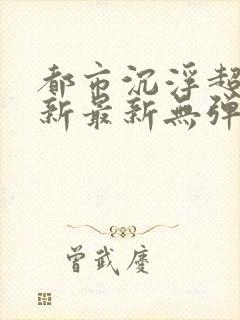 都市沉浮超
新最新無彈
曾武慶